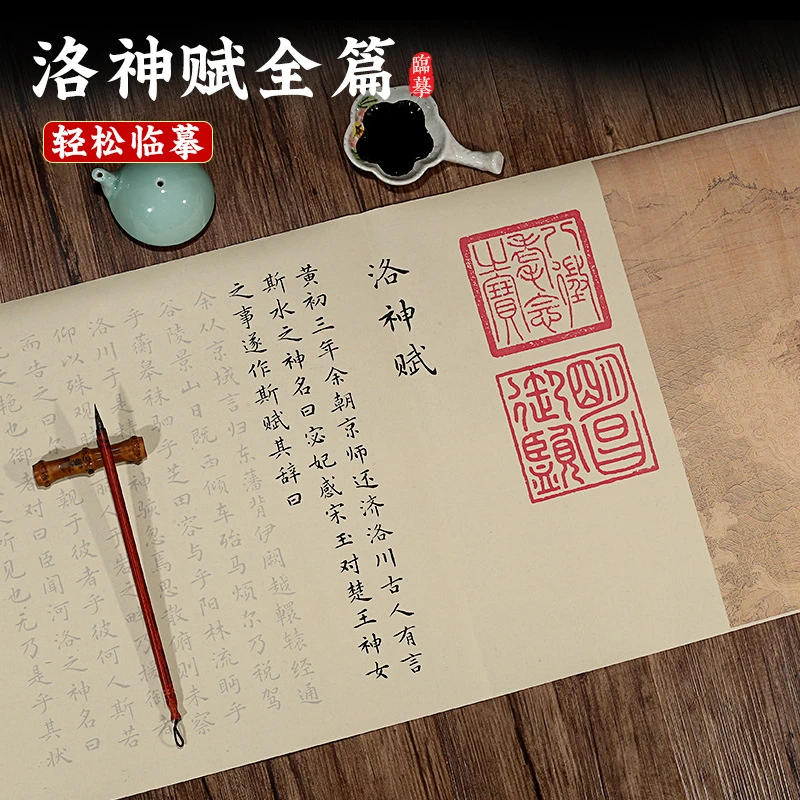 洛神赋全篇
臨摹
轻松临摹
八徵耄念之寶
明昌御覽
洛神赋
黄初三年余朝京师还济洛川古人有言
斯水之神名曰宓妃感宋玉对楚王神女
之事遂作斯赋其辞曰
余从京域言归东藩背伊阙越轘辕经通
谷陵景山日既西倾车殆马烦尔乃税驾
乎蘅皋秣驷乎芝田容与乎阳林流眄乎
洛川于是精神骇忽焉思散俯则未察
仰以殊观丽人于岩之畔乃援御者
而告之曰觌于彼者乎彼何人斯若
之艳也御者对曰臣闻河洛之神名曰
所见也无乃是乎其状